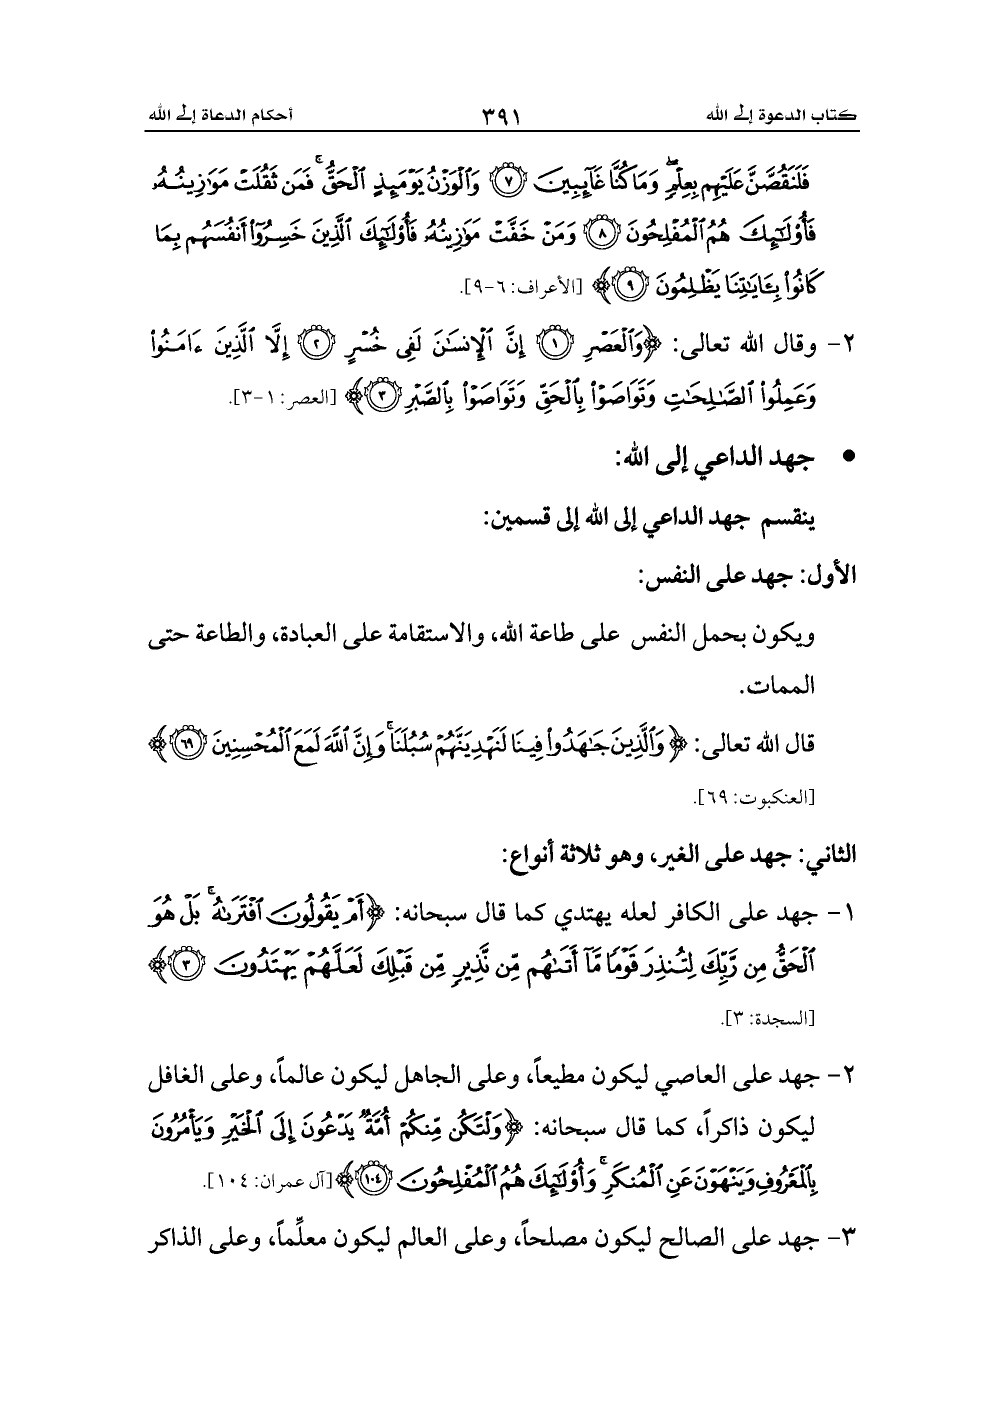 كتاب الدعوة إلى الله ٣٩١ أحكام الدعاة إلى الله
فَلَنَقُصَّنَّ عَلَيْهِم بِعِلْمٍ ۖ وَمَا كُنَّا غَآئِبِينَ ﴿٧﴾ وَٱلْوَزْنُ يَوْمَئِذٍ ٱلْحَقُّ ۚ فَمَن ثَقُلَتْ مَوَٰزِينُهُۥ
فَأُو۟لَـٰٓئِكَ هُمُ ٱلْمُفْلِحُونَ ﴿٨﴾ وَمَنْ خَفَّتْ مَوَٰزِينُهُۥ فَأُو۟لَـٰٓئِكَ ٱلَّذِينَ خَسِرُوٓا۟ أَنفُسَهُم بِمَا
كَانُوا۟ بِـَٔايَـٰتِنَا يَظْلِمُونَ ﴿٩﴾ [الأعراف: ٦-٩].
٢- وقال الله تعالى: ﴿وَٱلْعَصْرِ ﴿١﴾ إِنَّ ٱلْإِنسَـٰنَ لَفِى خُسْرٍ ﴿٢﴾ إِلَّا ٱلَّذِينَ ءَامَنُوا۟
وَعَمِلُوا۟ ٱلصَّـٰلِحَـٰتِ وَتَوَاصَوْا۟ بِٱلْحَقِّ وَتَوَاصَوْا۟ بِٱلصَّبْرِ ﴿٣﴾﴾ [العصر: ١-٣].
• جهد الداعي إلى الله:
ينقسم جهد الداعي إلى الله إلى قسمين:
الأول: جهد على النفس:
ويكون بحمل النفس على طاعة الله، والاستقامة على العبادة، والطاعة حتى
الممات.
قال الله تعالى: ﴿وَٱلَّذِينَ جَـٰهَدُوا۟ فِينَا لَنَهْدِيَنَّهُمْ سُبُلَنَا ۚ وَإِنَّ ٱللَّهَ لَمَعَ ٱلْمُحْسِنِينَ ﴿٦٩﴾﴾
[العنكبوت: ٦٩].
الثاني: جهد على الغير، وهو ثلاثة أنواع:
١- جهد على الكافر لعله يهتدي كما قال سبحانه: ﴿أَمْ يَقُولُونَ ٱفْتَرَىٰهُ ۚ بَلْ هُوَ
ٱلْحَقُّ مِن رَّبِّكَ لِتُنذِرَ قَوْمًا مَّآ أَتَىٰهُم مِّن نَّذِيرٍ مِّن قَبْلِكَ لَعَلَّهُمْ يَهْتَدُونَ ﴿٣﴾﴾
[السجدة: ٣].
٢- جهد على العاصي ليكون مطيعاً، وعلى الجاهل ليكون عالماً، وعلى الغافل
ليكون ذاكراً، كما قال سبحانه: ﴿وَلْتَكُن مِّنكُمْ أُمَّةٌ يَدْعُونَ إِلَى ٱلْخَيْرِ وَيَأْمُرُونَ
بِٱلْمَعْرُوفِ وَيَنْهَوْنَ عَنِ ٱلْمُنكَرِ ۚ وَأُو۟لَـٰٓئِكَ هُمُ ٱلْمُفْلِحُونَ ﴿١٠٤﴾﴾ [آل عمران: ١٠٤].
٣- جهد على الصالح ليكون مصلحاً، وعلى العالم ليكون معلِّماً، وعلى الذاكر